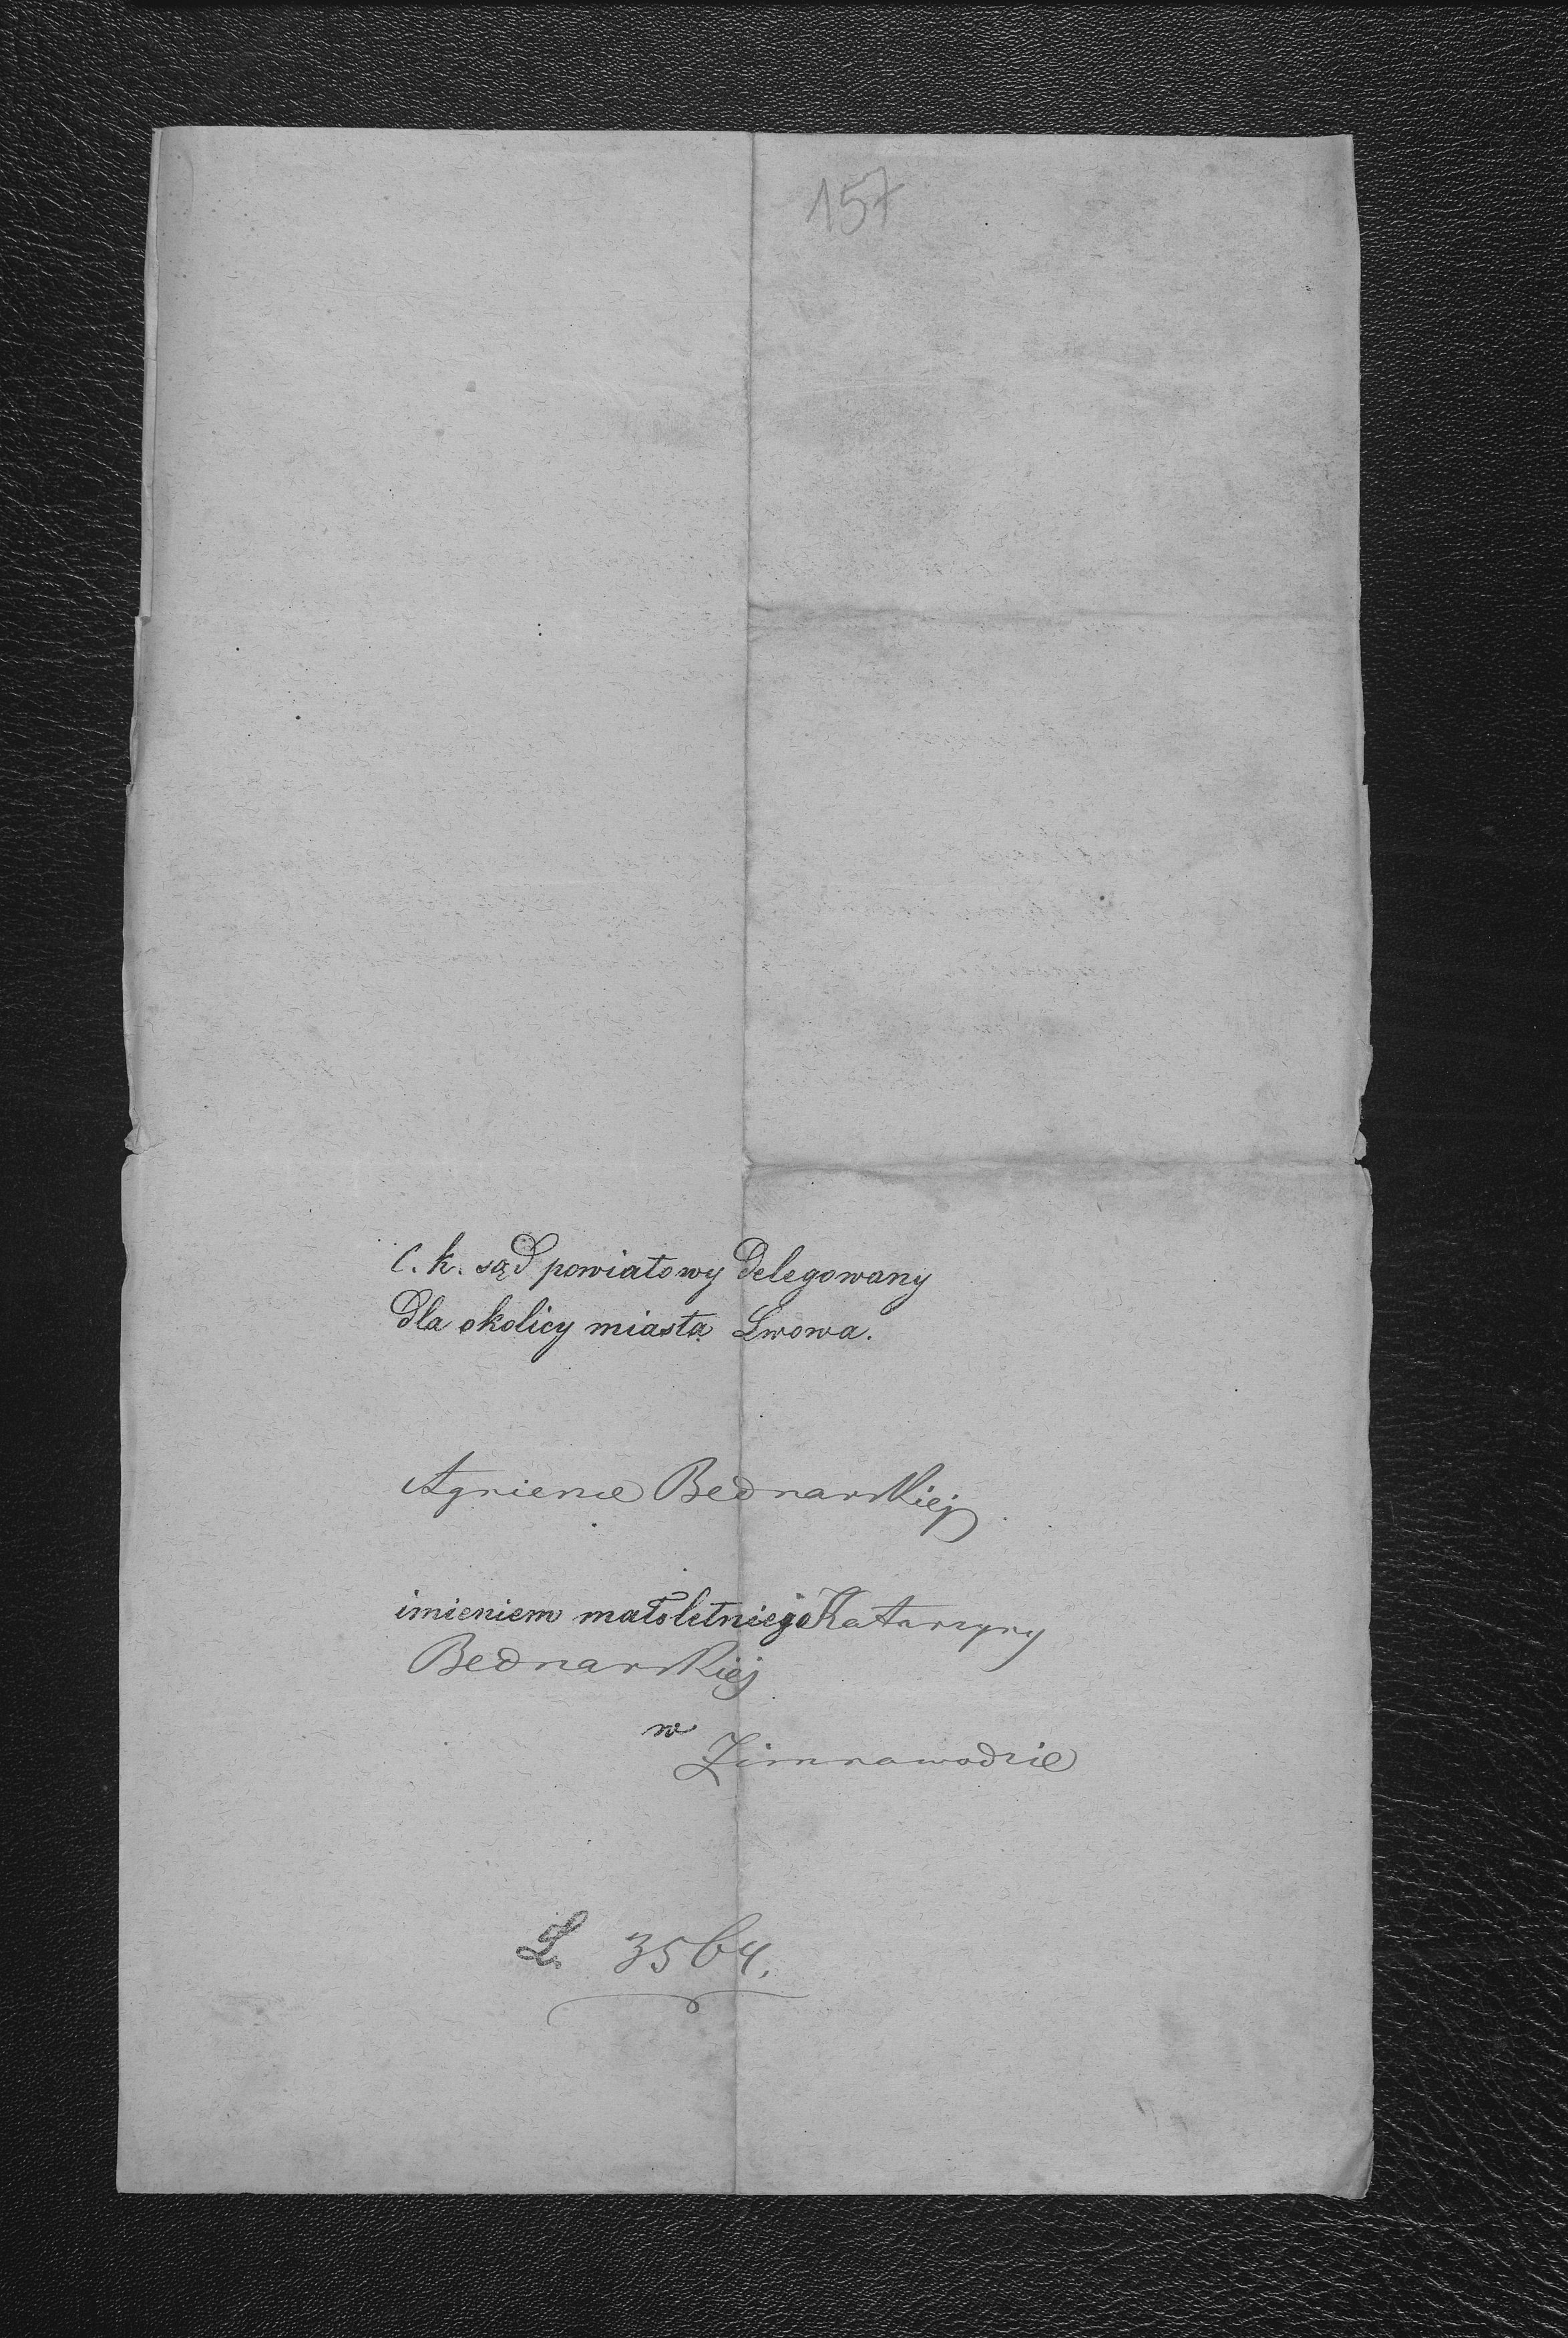 157
C. k. sąd powiatowy delegowany
dla okolicy miasta Lwowa.
Agniesce Bednarskiej
imieniem małoletniego Katarzyny
Bednarskiej
w
Zimnawodzie
L. 3564.